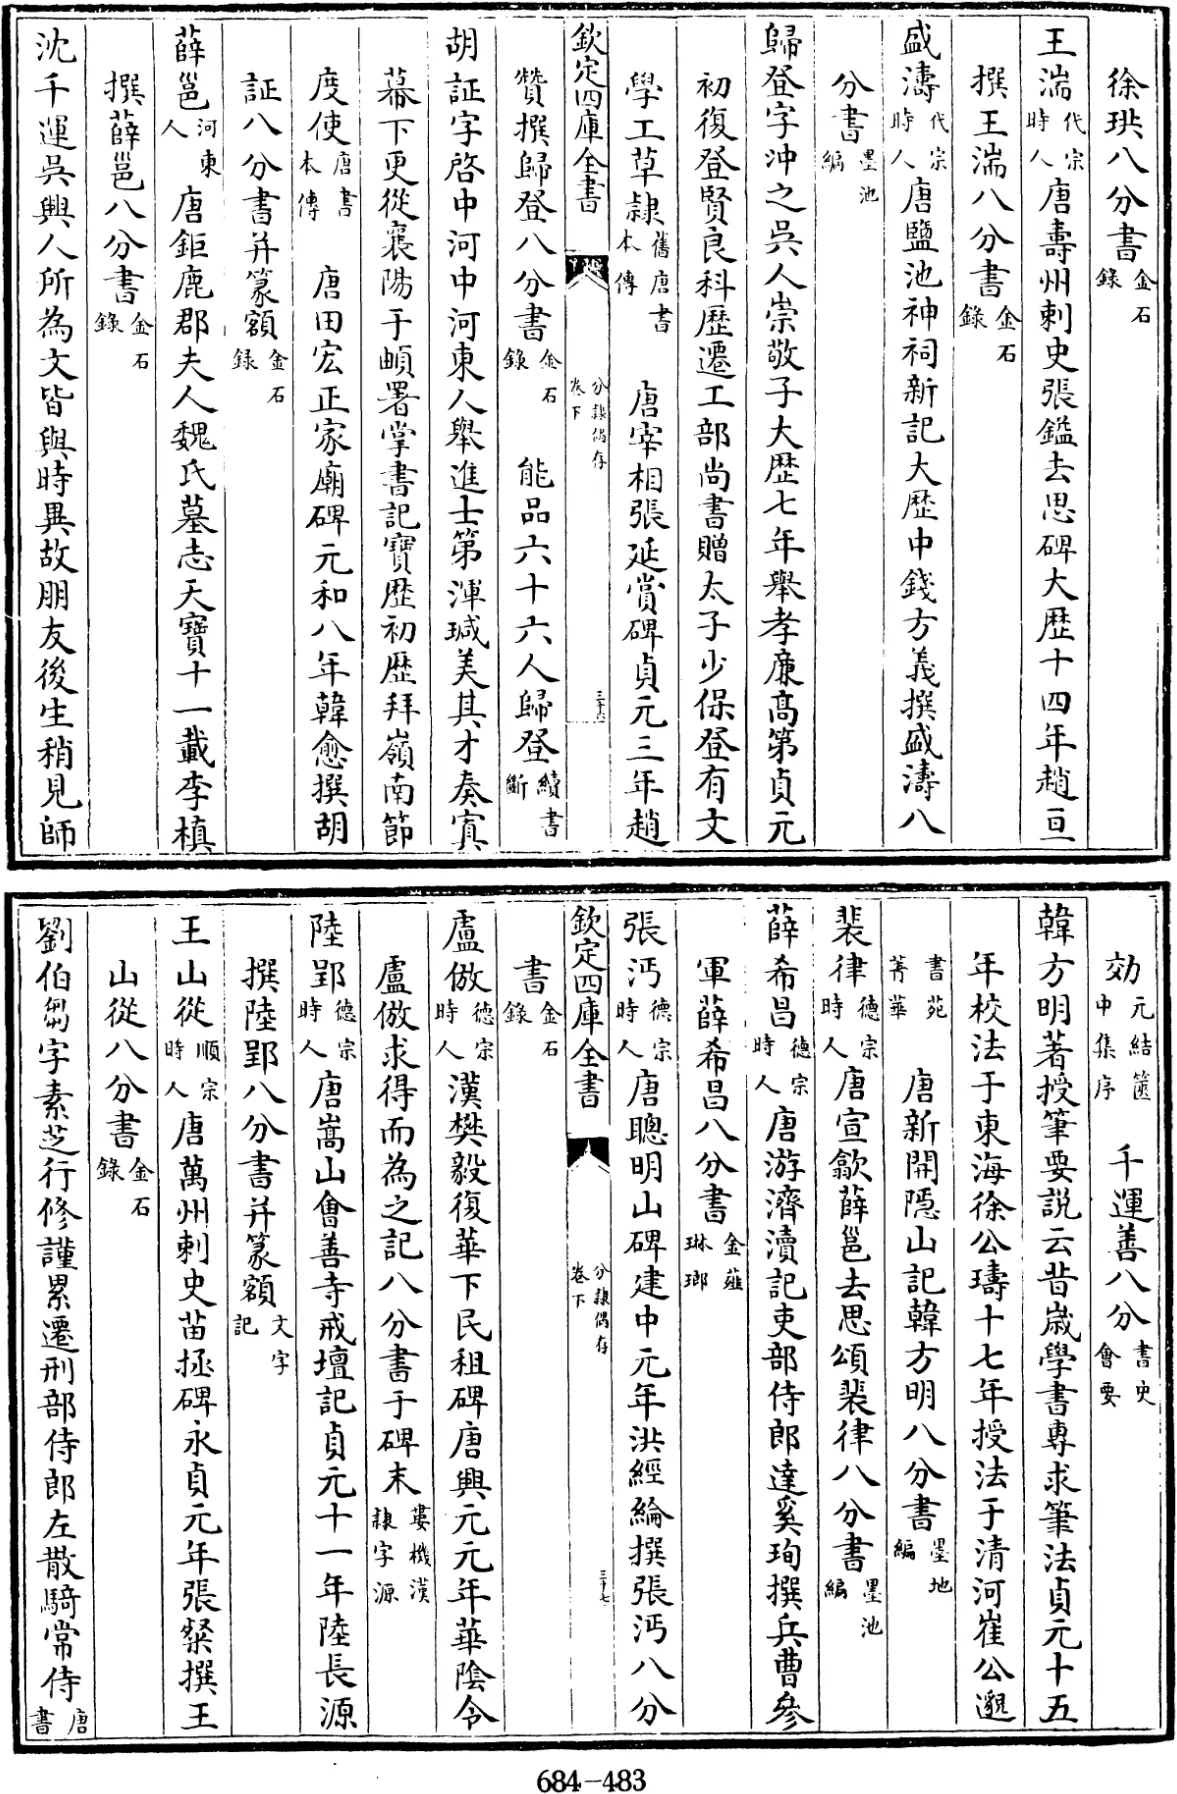 徐珙八分書金石錄
王湍代宗時人唐壽州刺史張鎰去思碑大歷十四年趙亘
撰王湍八分書金石錄
盛濤代宗時人唐鹽池神祠新記大歷中錢方義撰盛濤八
分書墨池編
歸登字沖之吳人崇敬子大歷七年舉孝廉高第貞元
初復登賢良科歷遷工部尚書贈太子少保登有文
學工草隸舊唐書本傳 唐宰相張延賞碑貞元三年趙
欽定四庫全書 分隸偶存卷下 三十六
贊撰歸登八分書金石錄 能品六十六人歸登續書斷
胡証字啓中河中河東人舉進士第渾瑊美其才奏寘
幕下更從襄陽于頔署掌書記寶歷初歷拜嶺南節
度使唐書本傳 唐田宏正家廟碑元和八年韓愈撰胡
証八分書并篆額金石録
薛邕河東人唐鉅鹿郡夫人魏氏墓志天寶十一載李槙
撰薛邕八分書金石錄
沈千運吳興人所為文皆與時異故朋友後生稍見師
効元結篋中集序 千運善八分書史會要
韓方明著授筆要説云昔歳學書專求筆法貞元十五
年校法于東海徐公璹十七年授法于清河崔公邈
書苑菁華 唐新開隱山記韓方明八分書墨地編
裴律德宗時人唐宣歙薛邕去思頌裴律八分書墨池編
薛希昌德宗時人唐游濟瀆記吏部侍郎達奚珣撰兵曹參
軍薛希昌八分書金薤琳瑯
張沔德宗時人唐聰明山碑建中元年洪經綸撰張沔八分
欽定四庫全書 分隸偶存卷下 三十七
書金石錄
盧倣德宗時人漢樊毅復華下民租碑唐興元元年華陰令
盧倣求得而為之記八分書于碑末婁機漢隸字源
陸郢德宗時人唐嵩山會善寺戒壇記貞元十一年陸長源
撰陸郢八分書并篆額文字記
王山從順宗時人唐萬州刺史苗拯碑永貞元年張粲撰王
山從八分書金石錄
劉伯芻字素芝行修謹累遷刑部侍郎左散騎常侍唐書
684-483